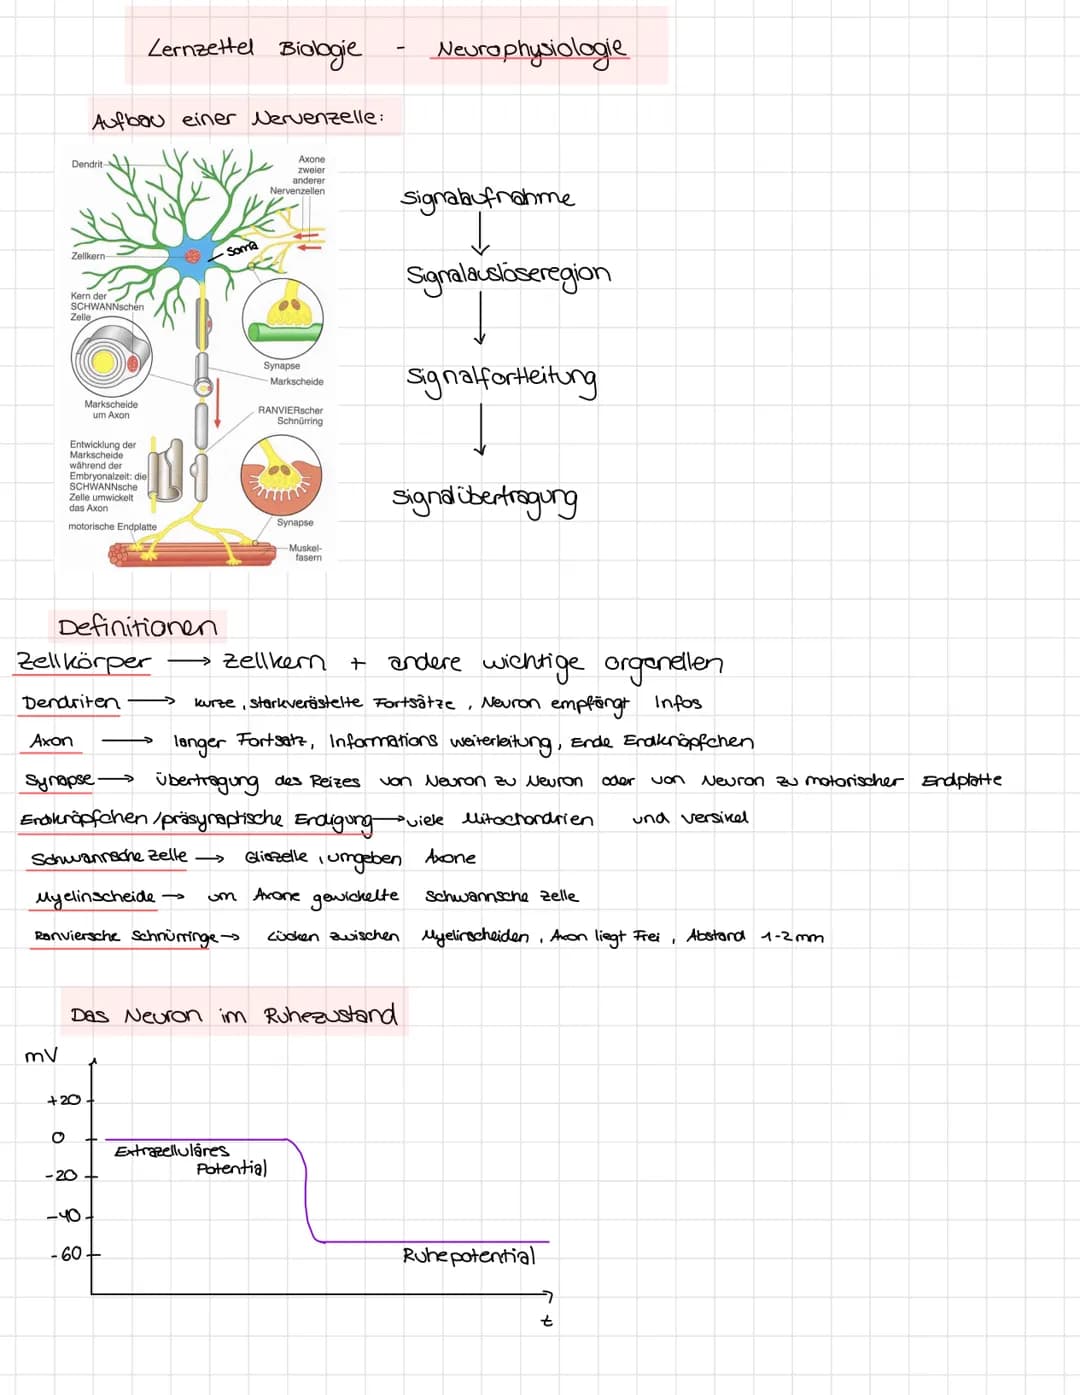 Lernzettel Biologie - Neurophysiologie
Aufbau einer Nervenzelle:
Dendrit
Axone
zweier
anderer
Nervenzellen
Signalaufnahme
Soma
Zellkern
Signalauslöseregion
Kern der
SCHWANNschen
Zelle
Synapse
Markscheide
Signalfortleitung
Markscheide
um Axon
RANVIERscher
Schnürring
Entwicklung der
Markscheide
während der
Embryonalzeit: die
SCHWANNsche
Zelle umwickelt
das Axon
Signalübertragung
motorische Endplatte
Synapse
Muskel-
fasern
Definitionen
Zellkörper → Zellkern + andere wichtige organellen
Dendriten → kurze, starkverästelte Fortsätze, Neuron empfängt Infos
Axon → langer Fortsatz, Informations weiterleitung, Ende Endknöpfchen
Synapse → Übertragung des Reizes von Neuron zu Neuron oder von Neuron zu motorischer Endplatte
Endknöpfchen/präsynaptische Endigung → viele Mitochondrien und Versikel
Schwannsche Zelle → Gliazelle, umgeben Axone
Myelinscheide → um Axone gewickelte Schwannsche Zelle
Ranviersche Schnürringe → Lücken zwischen Myelinscheiden, Axon liegt Frei, Abstand 1-2mm
Das Neuron im Ruhezustand
mV
+20
0
Extrazelluläres
Potential
-20
-40
-60
Ruhepotential
t